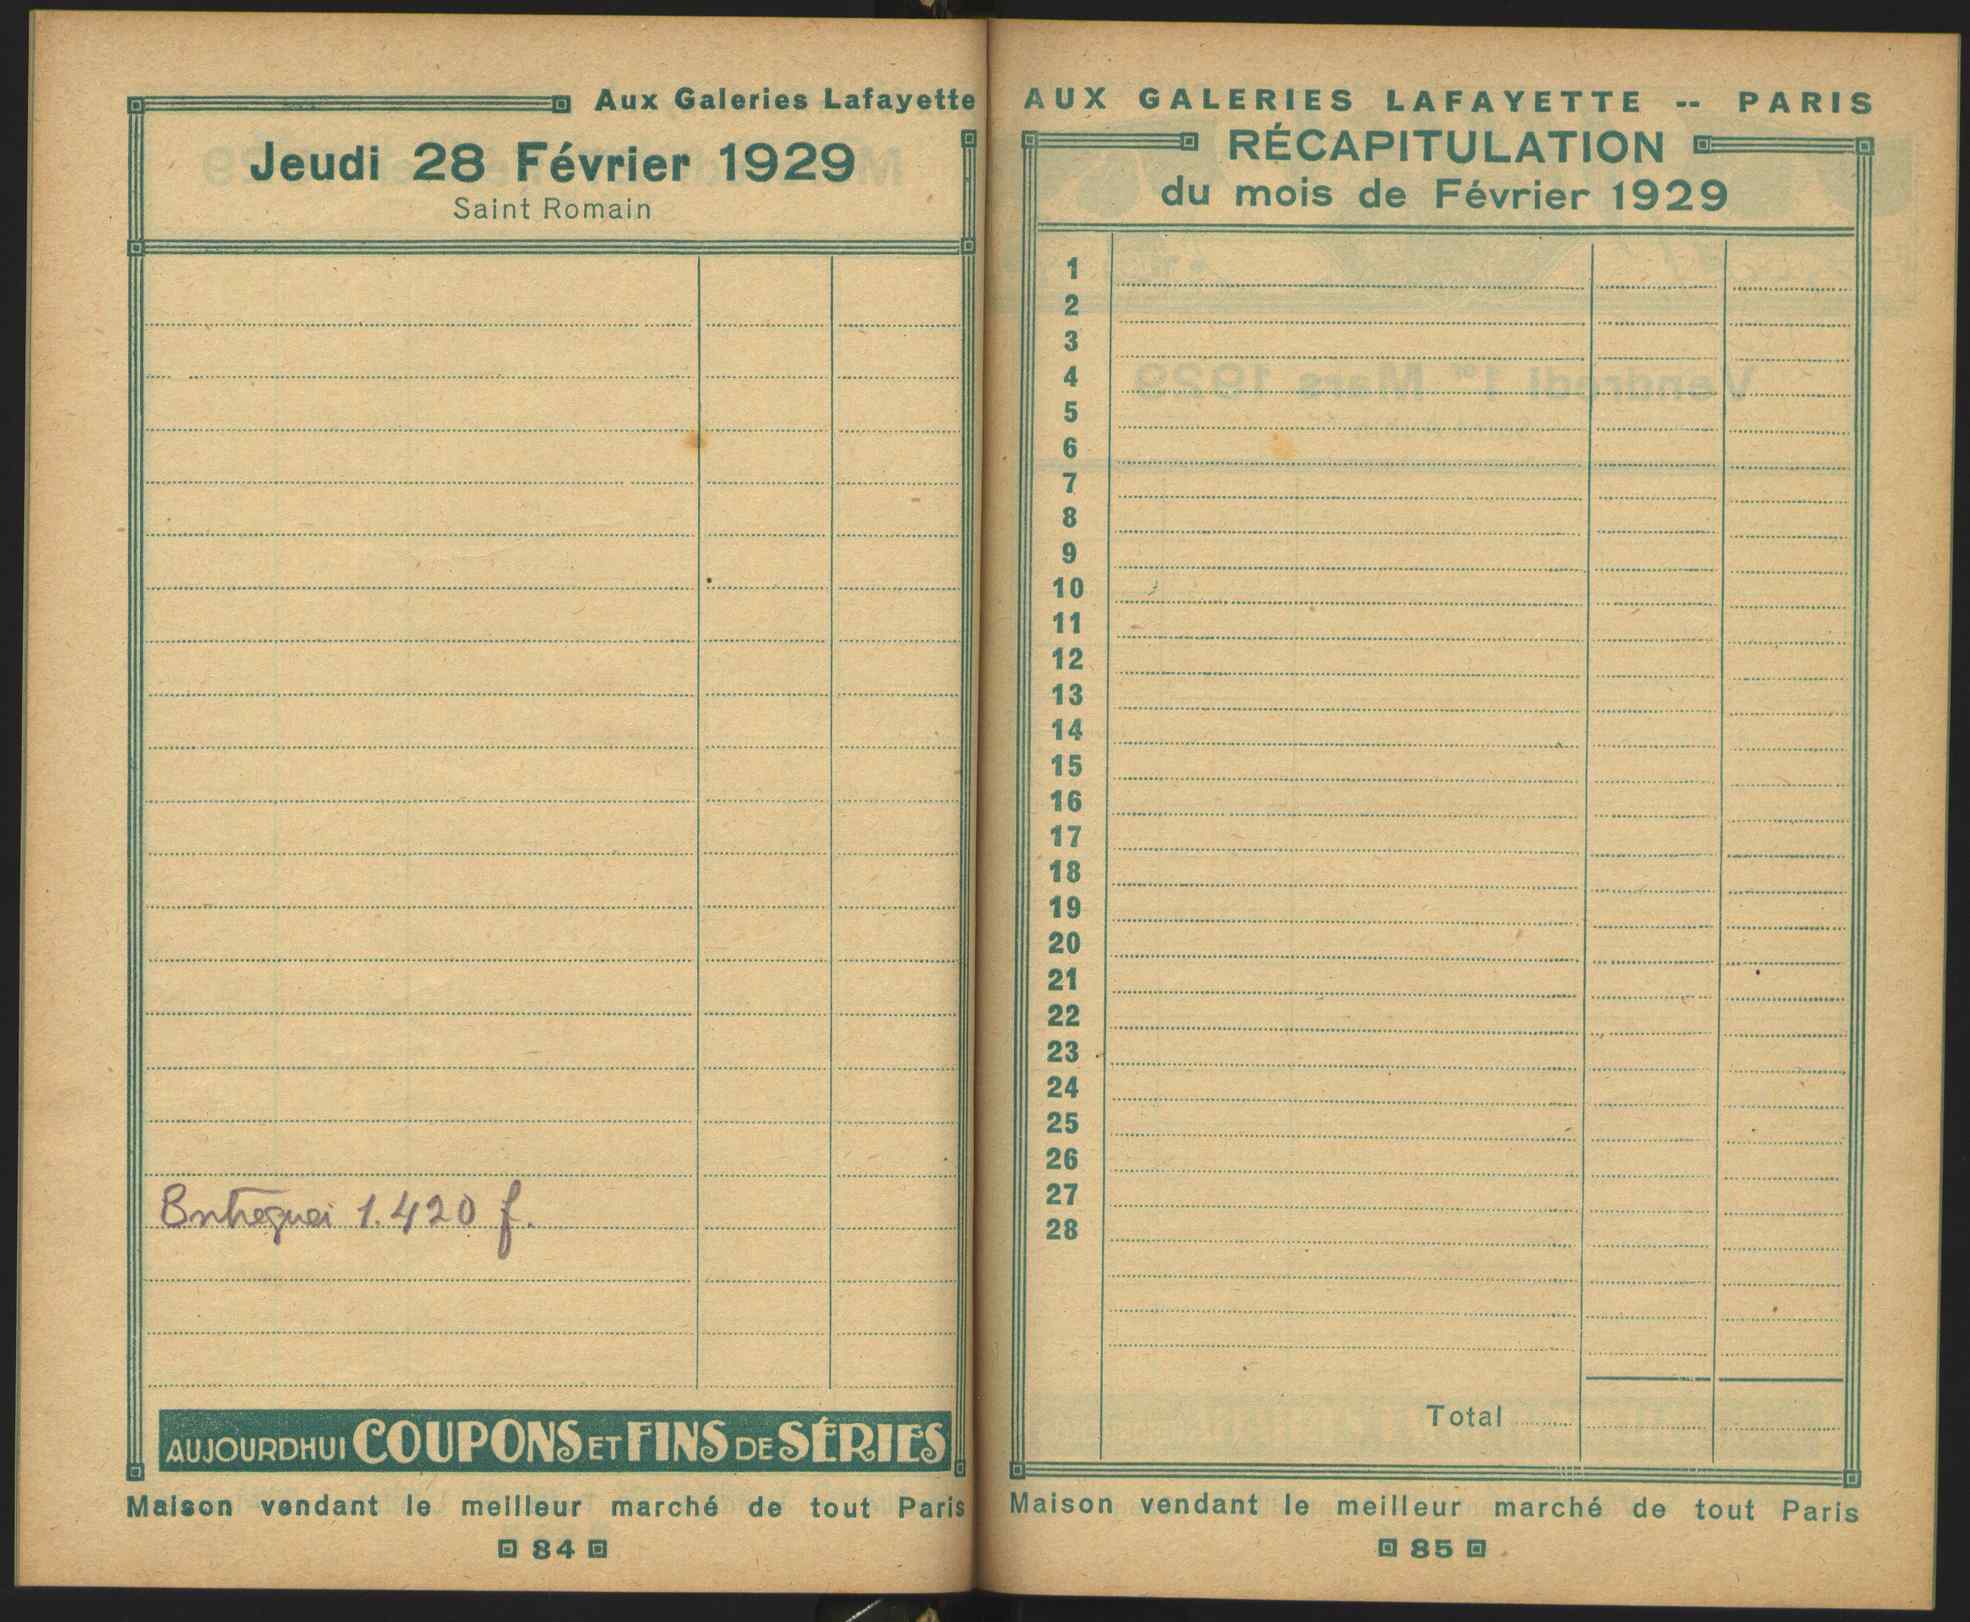 Aux Galeries Lafayette
Jeudi 28 Février 1929
Saint Romain
Entreguei 1.420 f.
AUJOURDHUI COUPONS ET FINS DE SÉRIES
Maison vendant le meilleur marché de tout Paris
84
AUX GALERIES LAFAYETTE -- PARIS
RÉCAPITULATION
du mois de Février 1929
1
2
3
4
5
6
7
8
9
10
11
12
13
14
15
16
17
18
19
20
21
22
23
24
25
26
27
28
Total
Maison vendant le meilleur marché de tout Paris
85